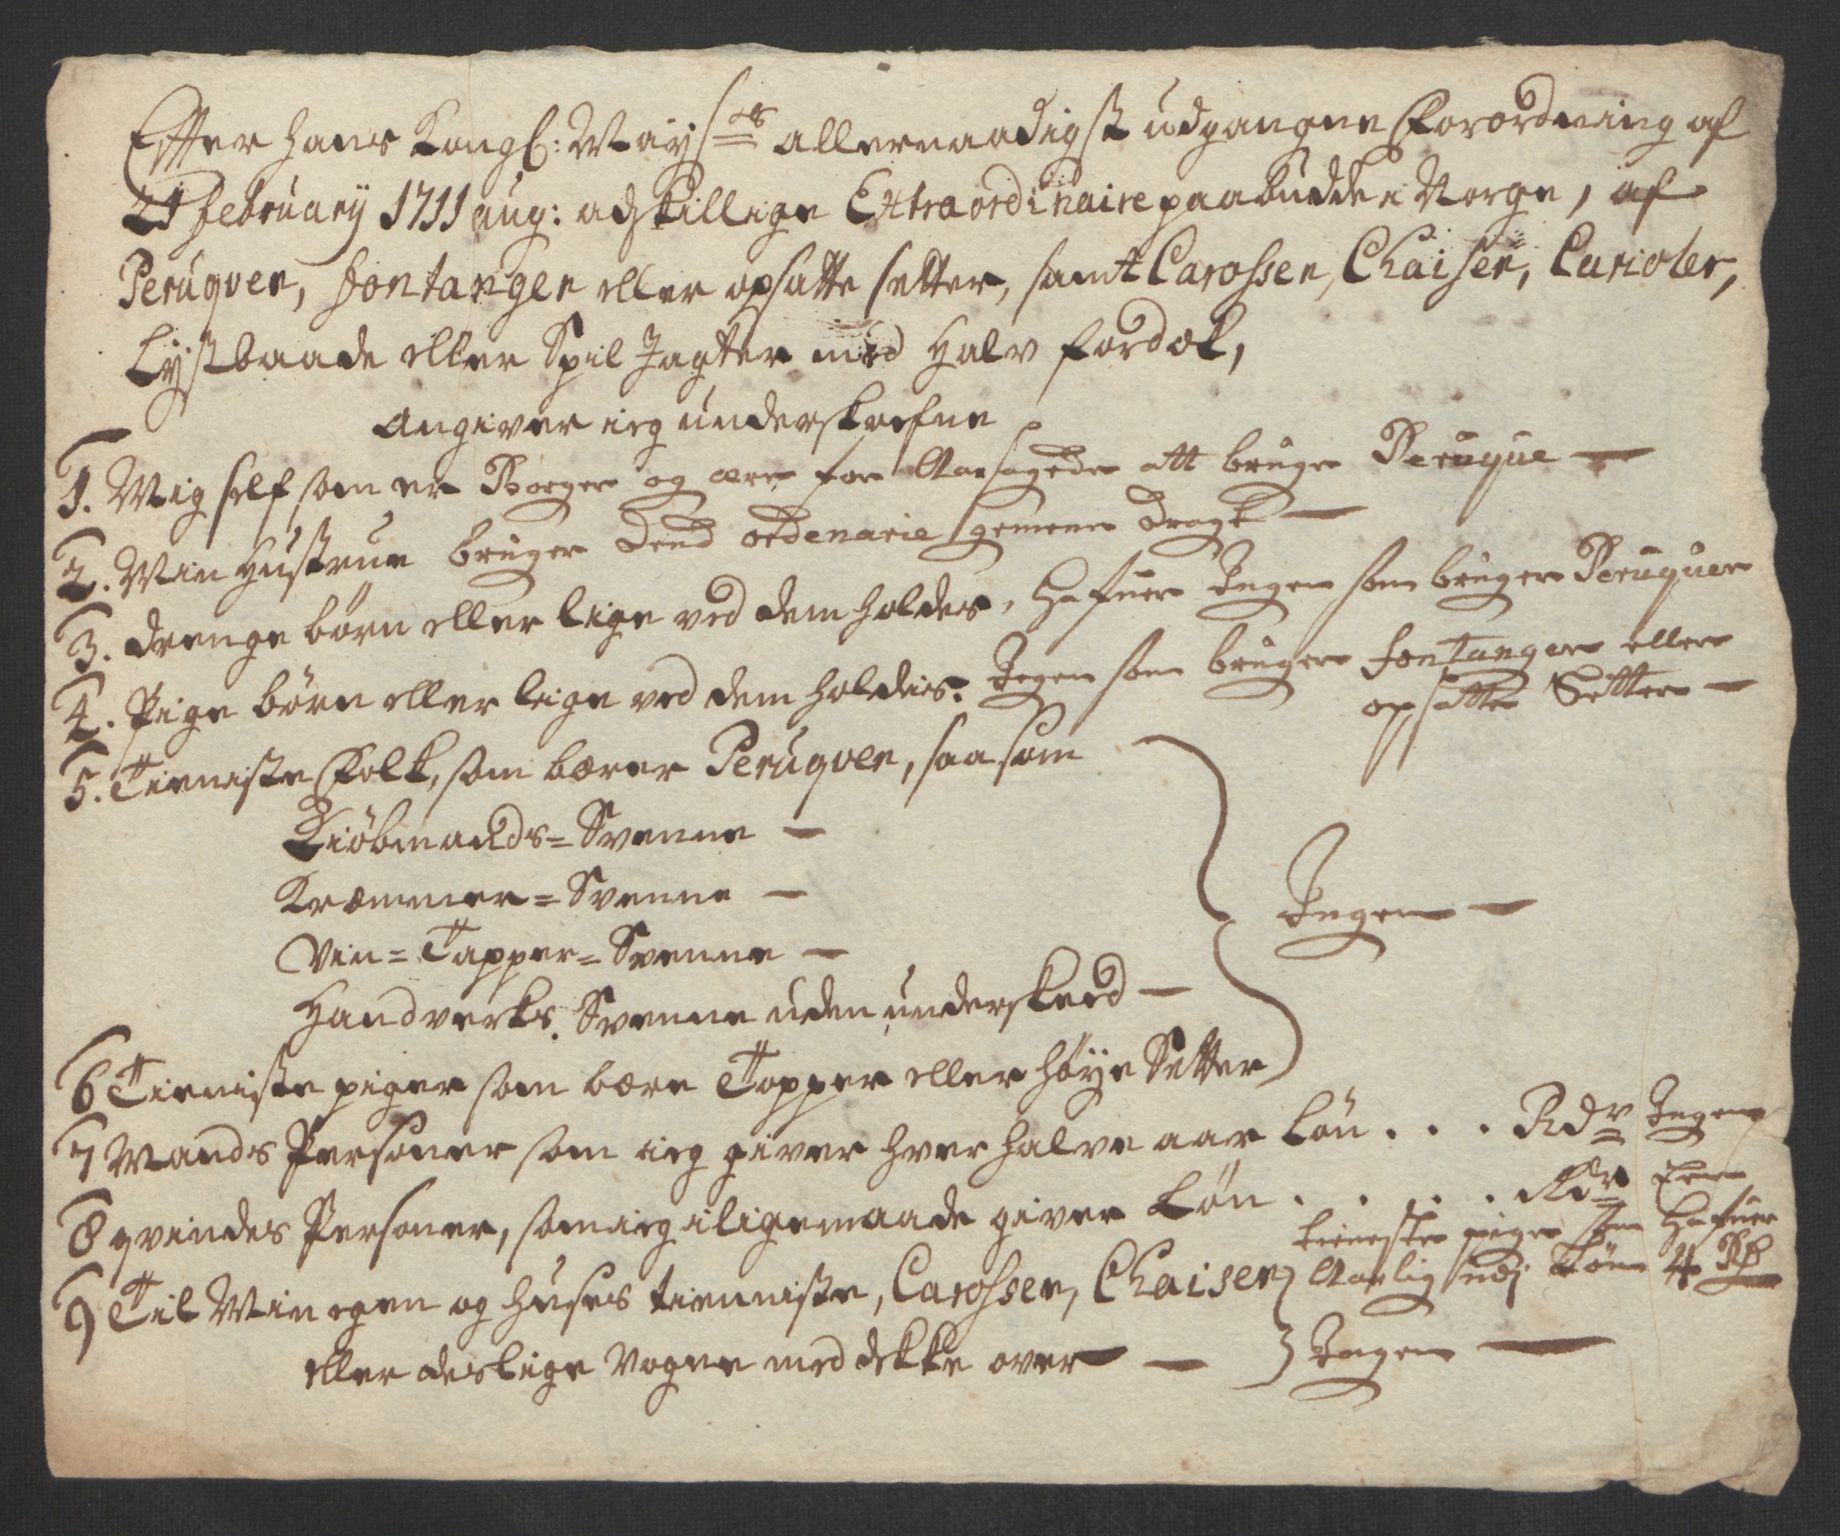 Effter hans Kongl: Maysts allernaadigst udgangne Forordning af
21 february 1711 ang: adskillige Extraordinaire paabudde i Norge, af
Peruqver, fontanger eller opsatte setter, samt Carosser, Chaiser, Carioler,
Lystbaade eller Spil Jagter med Halv fordæk,
Angiver ieg underskrefne
1. Mig self som er Borger og ære for Aarsagede att bruge Peruque —
2. Min Hustrue bruger dend ordenarie gemeene dragt —
3. drenge børn eller lige ved dem holdes, Hafuer Ingen som bruger Peruquer
4. Pige børn eller lige ved dem holdes. Ingen som bruger fontanger eller
opsatte Setter —
5. Tieniste Folk, som bærer Peruqver, saasom
Kiøbmands= Svenne —
Kræmmer= Svenne —
Vin= Tapper= Svenne —
Handverks. Svenne uden underskeed —
Ingen —
6 Tieniste piger som bære Topper eller høye Setter
7 Mands Personer som ieg giver hver halve aar Løn . . . Rdr Ingen
8 qvindes Personer, som ieg iligemaade giver Løn . . . . Rdr Een
tieneste pige som Hafuer
Aarlig udj Løn 4 Rd
9 Til Min egen og huses tienniste, Carosser, Chaiser
eller deslige Vogne med dekke over — Ingen —